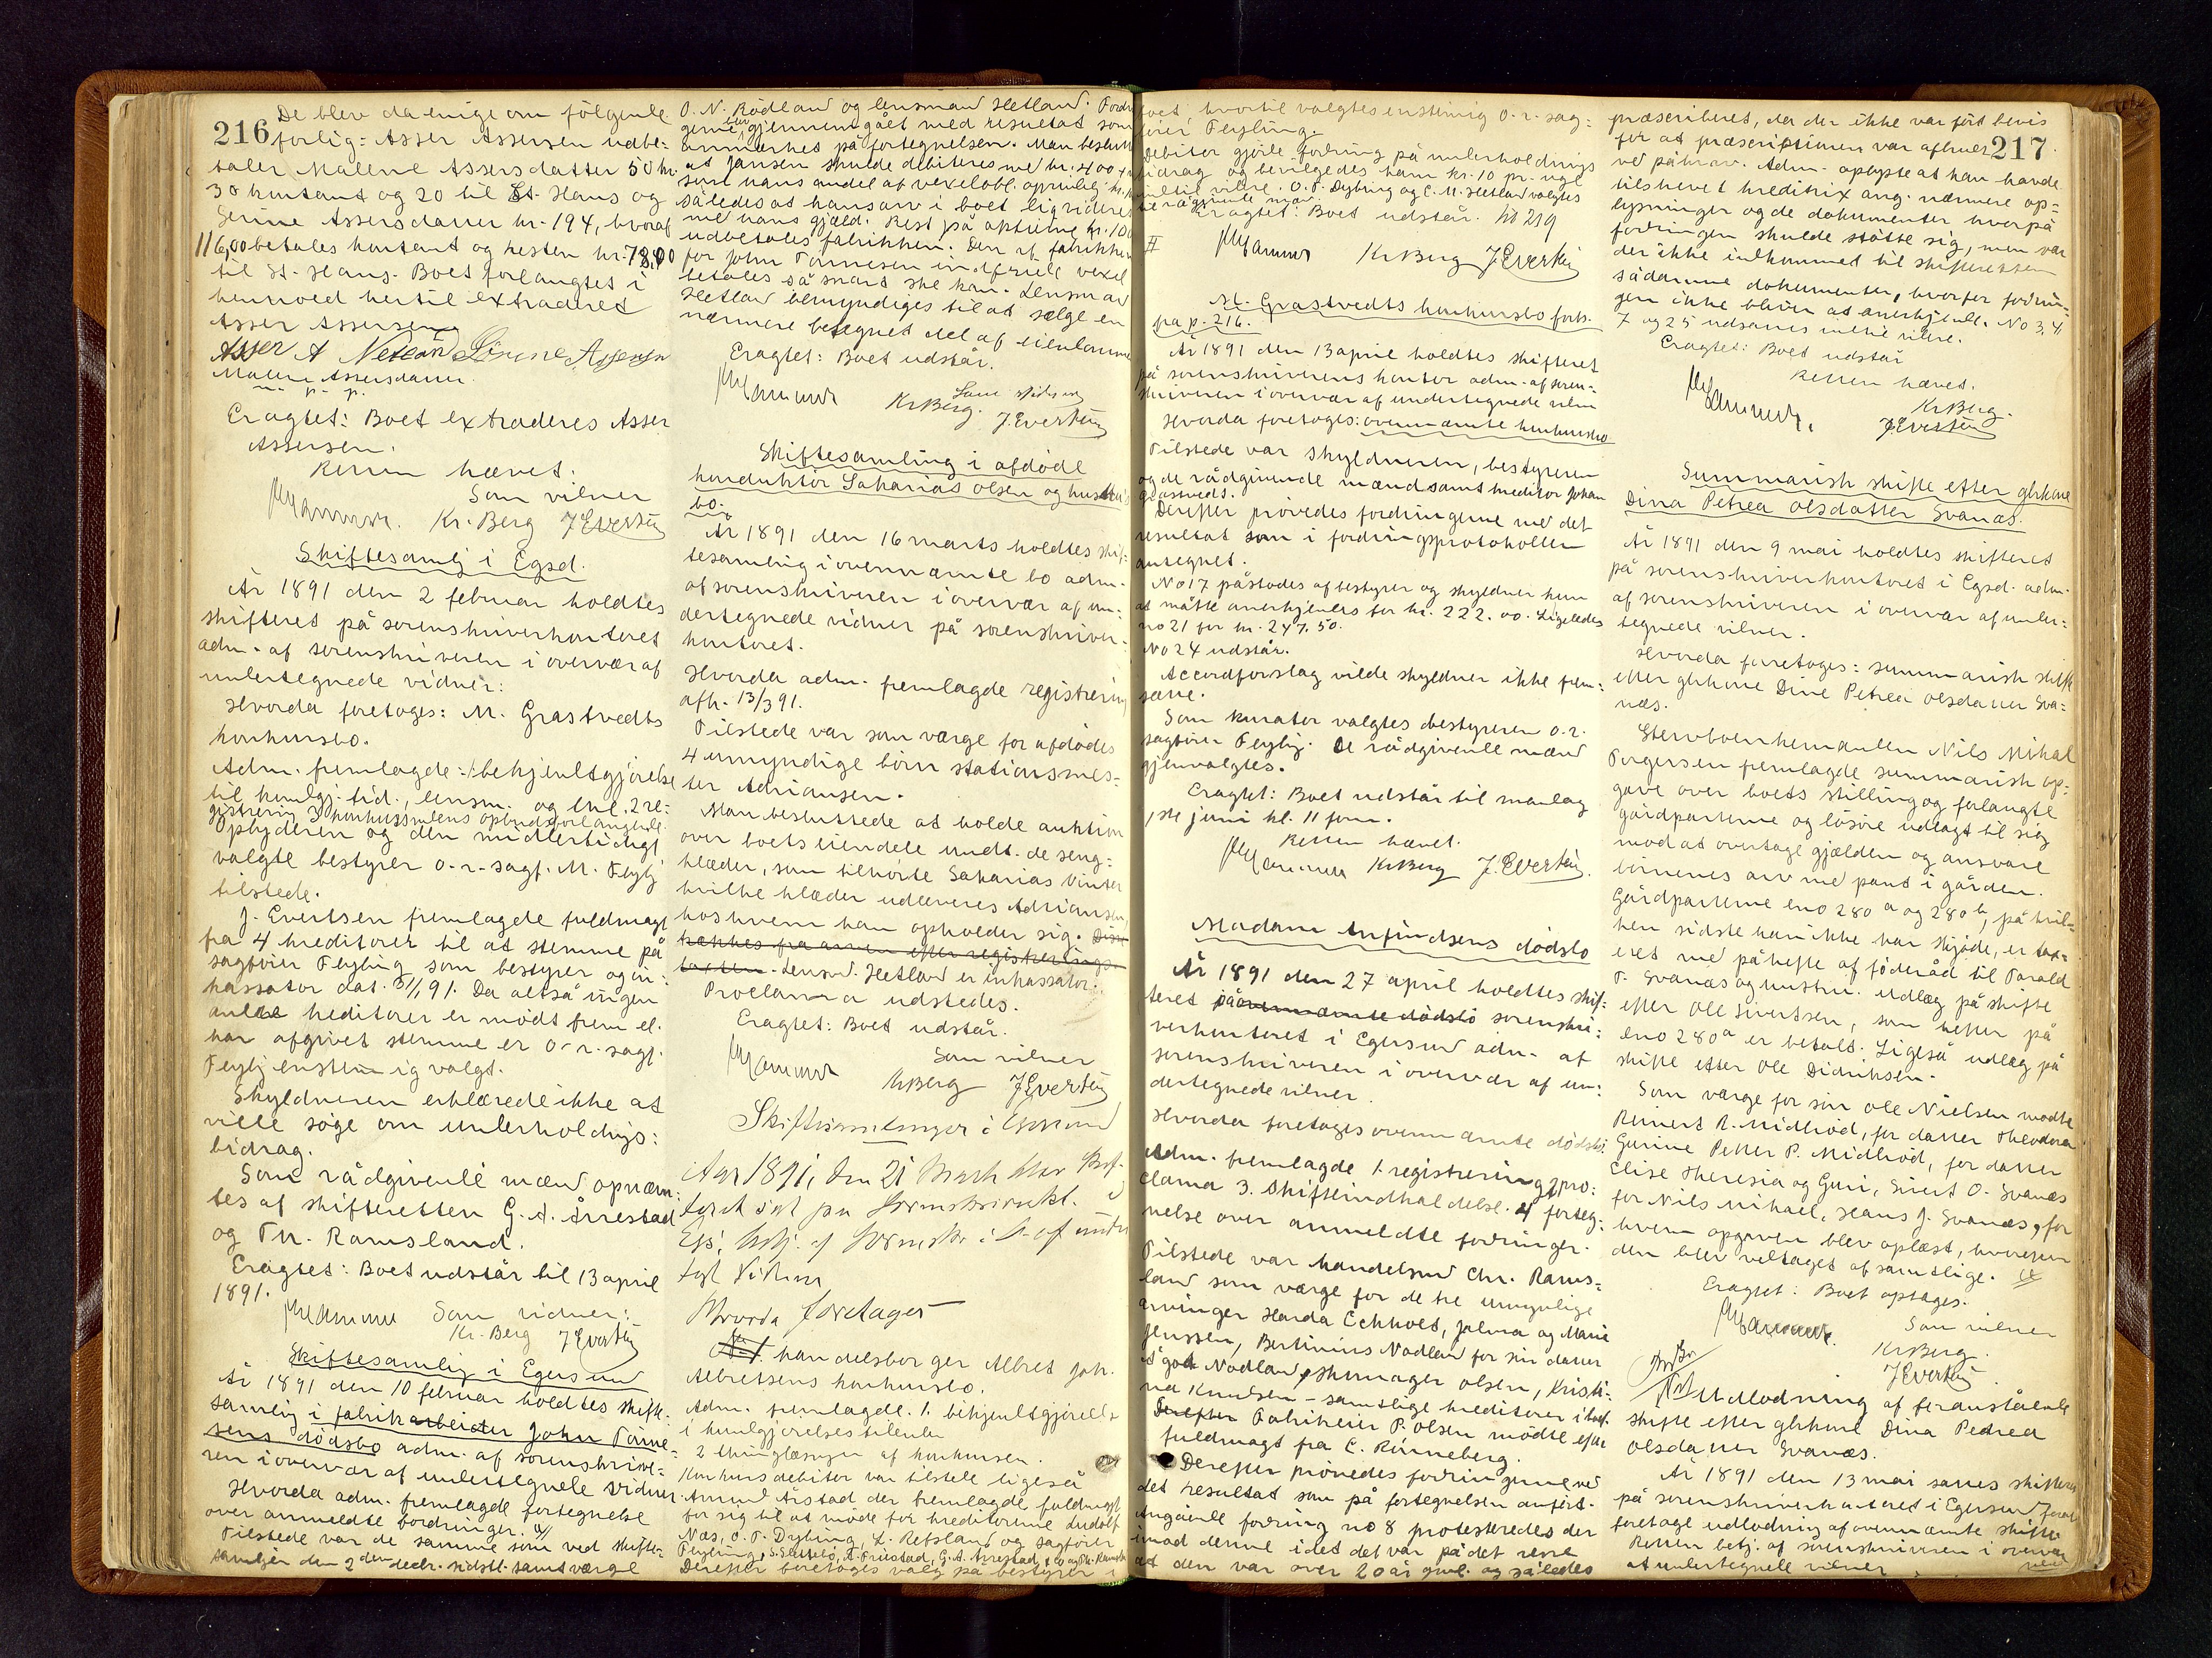 216
De blev da enige om følgende
forlig: Asser Assersen udbe-
taler Malene Assersdatter 50 kr.
30 kontant og 20 til St. Hans og
Serine Assersdatter kr. 194, hvoraf
116,00 betales kontant og resten kr. 78,00
til St. Hans. Boet forlangtes i
henhold hertil extraderet
Asser Assersen
Asser A Netland Sørine Assersen
Malene Assersdatter
m. p. p.
Eragtet: Boet extraderes Asser
Assersen.
Retten hævet.
Som vidner
Kr. Berg J Evertsen
Skiftesamlg i Egsd.
År 1891 den 2 februar holdtes
skifteret på sorenskriverkontoret
adm. af sorenskriveren i overvær af
undertegnede vidner:
Hvorda foretoges: M. Grastvedts
konkursbo.
Adm. fremlagde: 1 bekjendtgjørelse
til kundgj. tid., lensm. og thl. 2 re-
gistrering 3 konkursskyldnerens opbudsforlangende
Opbyderen og den midlertidigt
valgte bestyrer o.r.sagf. M. Feylg
tilstede.
J. Evertsen fremlagde fuldmagt
fra 4 kreditorer til at stemme på
sagfører Feyling som bestyrer og in-
kassator dat. 31/1 91. Da altså ingen
andre kreditorer er mødt frem el.
har afgivet stemme er o.r. sagf.
Feylg enstemmig valgt.
Skyldneren erklærede ikke at
ville søge om underholdngs-
bidrag.
Som rådgivende mænd opnævn-
tes af skifteretten G. A. Årrestad
og Th. Ramsland.
Eragtet: Boet udstår til 13 april
1891.
Som vidner:
Kr. Berg J Evertsen
Skiftesamlig i Egersund
År 1891 den 10 februar holdtes skifte-
samlig i fabrikarbeider John Tønne-
sens dødsbo adm. af sorenskrive-
ren i overvær af undertegnede vidner.
Hvorda adm. fremlagde fortegnelse
over anmeldte fordringer.
Tilstede var de samme som ved skifte-
samlgen den 2den decbr. sidstl. samt værge
O. N. Rødland og lensmand Hetland. Fordr
gerne blev gjennemgået med resultat som
anmærket på fortegnelsen. Man beslutt
at Jansen skulde debiteres med kr. 400,
som hans andel af vexelobl.
således at hans arv i boet ligvideres
med hans gjæld. Rest på optume kr. 100
udbetales fabrikken. Den af fabrikken
for John Tønnesen indfriede vexel
betales så snart ske kan. Lensmand
Hetland bemyndiges til at sælge en
nærmere betegnet del af eiendommen
Eragtet: Boet udstår.
Som vidner
Kr Berg. J. Evertsen
Skiftesamling i afdøde
konduktør Sakarias Olsen og hustrus
bo.
År 1891 den 16 marts holdtes skif-
tesamling i ovennævnte bo adm.
af sorenskriveren i overvær af un-
dertegnede vidner på sorenskriver-
kontoret.
Hvorda adm. fremlagde registrering
afh. 13/3 91.
Tilstede var som værge for afdødes
4 umyndige børn stationsmes-
ter Adriansen.
Man besluttede at holde auktion
over boets eiendele undt. de seng-
klæder, som tilhørte Sakarias Vinter
hvilke klæder udleveres Adriansen,
hos hvem han opholder sig. Disse
trækkes fra arven efter registrerings-
taxten. Lensmd. Hetland er inkassator.
Proclama udstedes.
Eragtet: Boet udstår.
Som vidner
Kr Berg J Evertsen
Skiftesamlinger i Egersund
Aar 1891, den 21 Marts blev Skif-
teret sat paa Sorenskriverkt.
Egs. betj. af Sorenskr. i O. af under
tegn Vidner
Hvorda foretages
No 1. handelsborger Albret Joh.
Albretsens konkursbo.
Adm. fremlagde. 1. bekjendtgjørelse
i kundgjørelsestidende
2 thinglæsning af konkursen.
Konkursdebitor var tilstede ligeså
Amund Årstad der fremlagde fuldmagt
for sig til at møde for kreditorerne Ludolf
Næs, O. T. Dybing, L. Refsland og sagfører
Feyling, A. Friestad, G. A. Årrestad & co og Th. Ramsland
Derefter foretoges valg på bestyrer i
boet, hvortil valgtes enstemmig o.r. sag-
fører Feyling.
Debitor gjorde fordring på underholdings
bidrag og bevilgedes ham kr. 10 pr. uge
indtil videre. O. T. Dybing og C. M. Hetland valgtes
til rådgivende mænd.
Eragtet: Boet udstår. No 219
II
Kr Berg J Evertsen
M. Grastvedts konkursbo forts.
fra p. 216.
År 1891 den 13 april holdtes skifteret
på sorenskriverens kontor adm. af soren-
skriveren i overvær af undertegnede vidner
Hvorda foretoges: ovennævnte konkursbo
Tilstede var skyldneren, bestyreren
og de rådgivende mænd samt kreditor Johan
Grastvedt.
Derefter prøvedes fordringerne med det
resultat som i fordringsprotokollen
antegnet.
No 17 påstodes af bestyrer og skyldner kun
at måtte anerkjendes for kr. 222.00. Ligeledes
no 21 for kr. 247.50.
No 24 udstår.
Accordforslag vilde skyldner ikke frem-
sætte.
Som kurator valgtes bestyreren o.r.
sagfører Feylg. De rådgivende mænd
gjenvalgtes.
Eragtet: Boet udstår til mandag
1ste juni kl. 11 fm.
Retten hævet.
Kr Berg J. Evertsen.
Madam Enfindsens dødsbo
År 1891 den 27 april holdtes skif-
teret på ovennævnte dødsbo sorenskri-
verkontoret i Egersund adm. af
sorenskriveren i overvær af un-
dertegnede vidner.
Hvorda foretoges ovennævnte dødsbo.
Adm. fremlagde 1. registrering 2 pro-
clama 3. Skifteindkaldelse. 4 forteg-
nelse over anmeldte fordringer.
Tilstede var handelsmd Chr. Rams-
land som værge for de tre umyndige
arvinger Harda Eckholt, Jalma og Marie
Jenssen, Bertinius Nødland for sin datter
Nødland, Skomager Olsen, Kristi-
na Knudsen – samtlige kreditorer i boet.
Derefter Fabrikeier P. Olsen mødte efter
fuldmagt fra C. Rinneberg.
Derefter prøvedes fordringerne med
det resultat som på fortegnelsen anført.
Angående fordring no 8 protesteredes der
imod denne idet det var på det rene
at den var over 20 år gml. og således
217
præscriberet, da der ikke var ført bevis
for at præscriptionen var afbrudt
ved påkrav. Adm. oplyste at han havde
tilskrevet kreditrix ang. nærmere op-
lysninger og de dokumenter hvorpå
fordringen skulde støtte sig, men var
der ikke indkommet til skifteretten
sådanne dokumenter, hvorfor fordrin-
gen ikke bliver at anerkjende. No 3, 4
7 og 25 udsattes indtil videre.
Eragtet: Boet udstår
Retten hævet.
Kr Berg.
J Evertsen
Summarisk skifte efter gårdkone
Dina Petrea Olsdatter Svanæs.
År 1891 den 9 mai holdtes skifteret
på sorenskriverkontoret i Egsd. adm.
af sorenskriveren i overvær af under-
tegnede vidner.
Hvorda foretoges: summarisk skifte
efter gårdkone Dine Petrea Olsdatter Sva-
næs.
Stervboenkemanden Nils Mikal
Torgersen fremlagde summarisk op-
gave over boets stilling og forlangte
gårdparterne og løsøre udlagt til sig
mod at overtage gjælden og ansvare
børnenes arv med pant i gården.
Gårdparterne eno 280 a og 280 b, på hvil-
ken sidste han ikke har skjøde, er tax-
eret med påhefte af føderåd til Tarald
T. Svanæs og hustru. Udlæg på skifte
efter Ole Sivertsen, som hefter på
eno 280 a er betalt. Ligeså udlæg på
skifte efter Ole Didriksen.
Som værge for søn Ole Nielsen mødte
Reinert R. Midbrød, for datter Theodora
Gurine Petter P. Midbrød, for datter
Elise Theresia og Guri, Sivert O. Svanæs
for Nils Mikael, Hans J. Svanæs, for
hvem opgaven blev oplæst, hvorefter
den blev vedtaget af samtlige.
Eragtet: Boet optages.
Som vidner
Kr Berg.
J Evertsen
Udlodning af foranstående
skifte efter gårdkone Dina Petrea
Olsdatter Svanæs.
År 1891 den 13 mai sattes skifteret
på sorenskriverkontoret i Egersund for at
foretage udlodning af ovennævnte skifte
Retten betj. af sorenskriveren i overvær
af undertegnede vidner